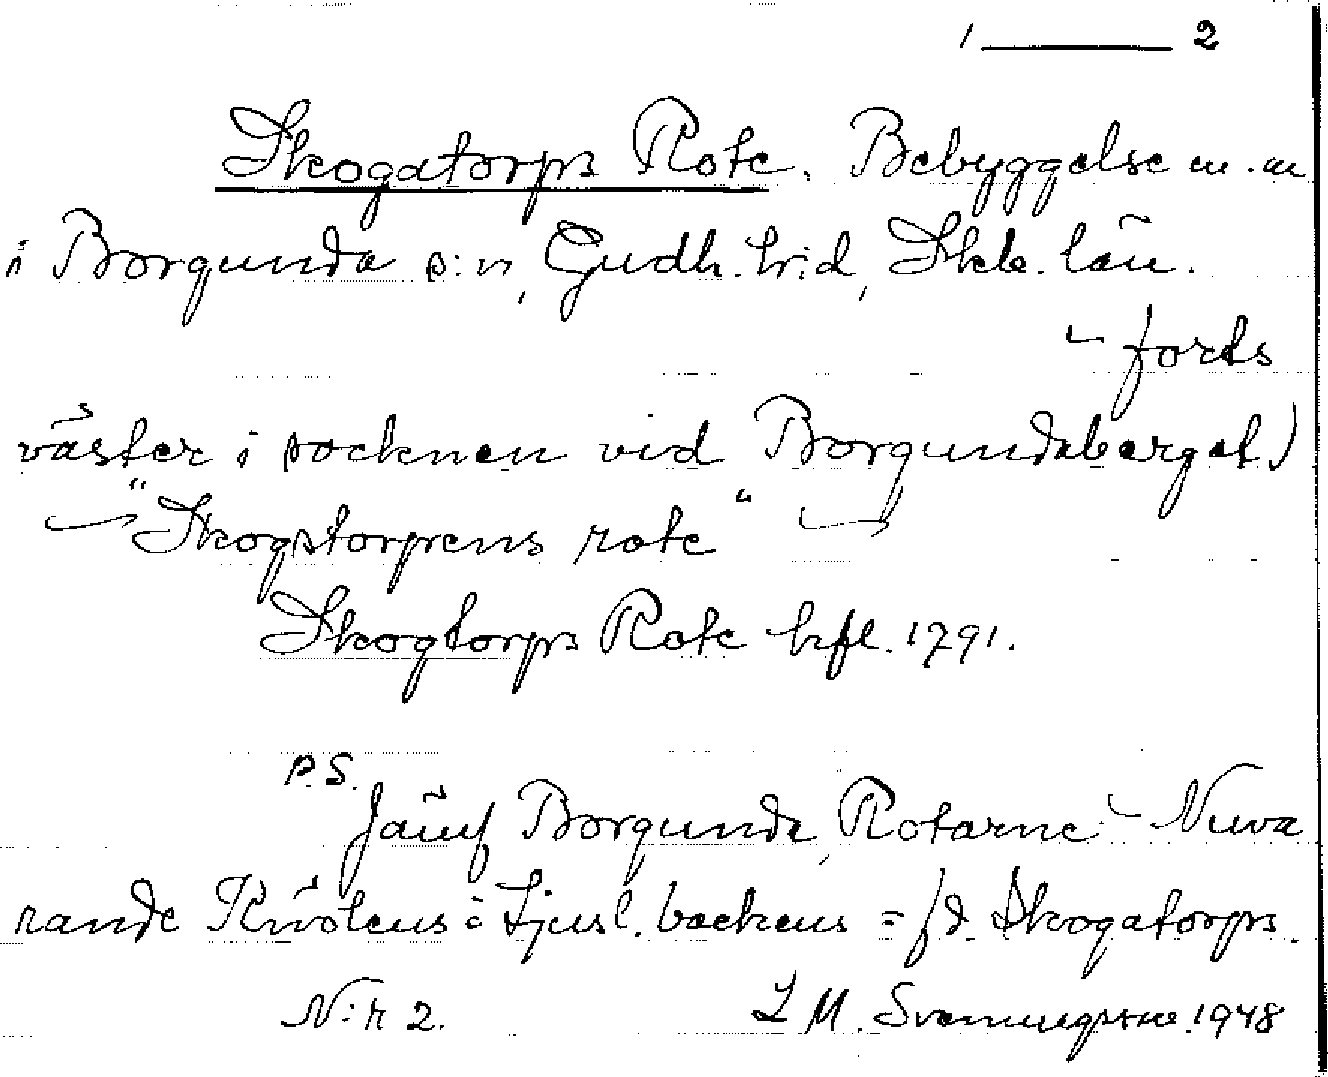 1 —— 2
Skogatorps Rote. Bebyggelse m.m
i Borgunda s:n, Gudh. hr:d, Skb. län.
- forts
väster i socknen vid Borgundaberget)
"Skogstorpens rote"
Skogtorps Rote hfl. 1791.
P.S.
Jämf Borgunda, Rotarne - Nuva
rande Knölens i Ljusl. backens = fd. Skogatorps.
N:r 2. L M. Svenningsson. 1948